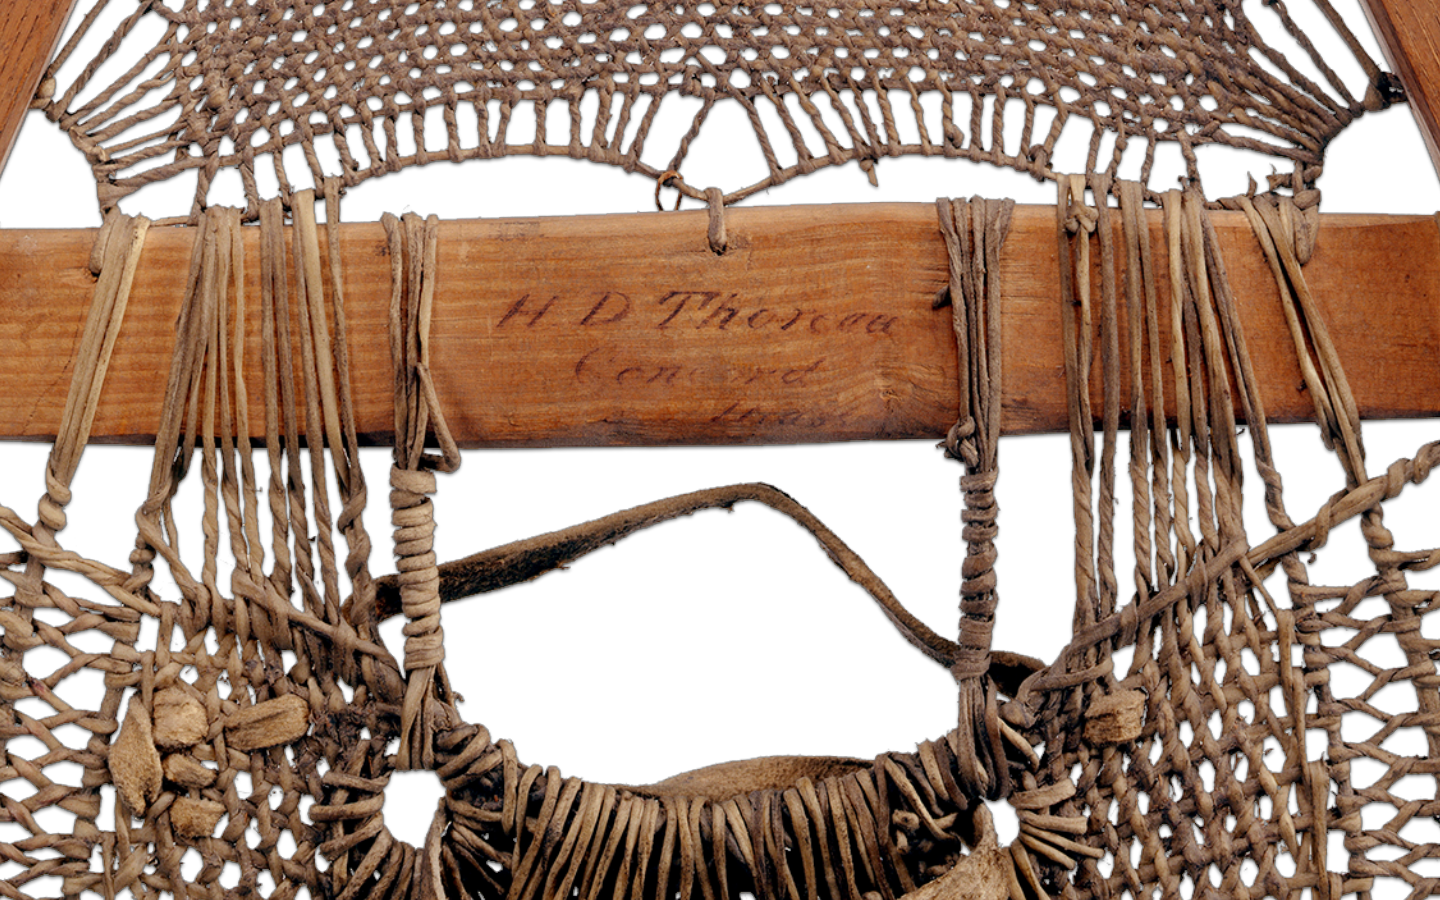 H D Thoreau
Concord
Mass